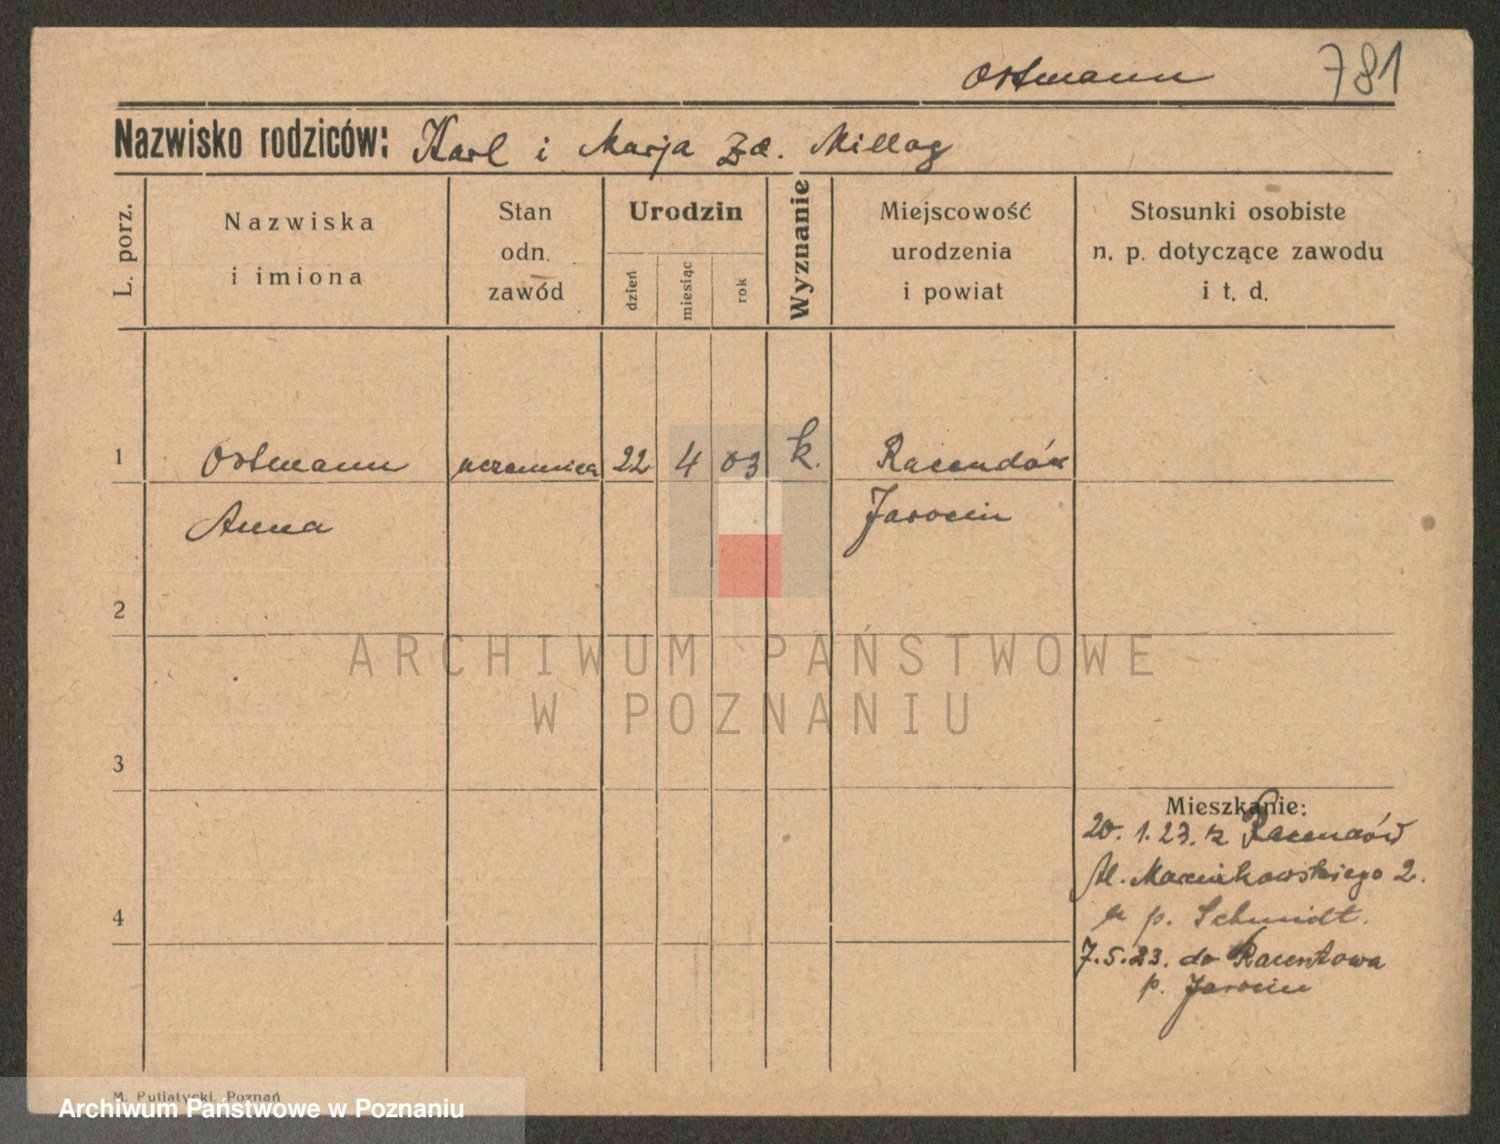 Ostmann 781
Nazwisko rodziców: Karl i Marja zd. Millag
L. porz.
Nazwiska
i imiona
Stan
odn.
zawód
Urodzin
dzień
miesiąc
rok
Wyznanie
Miejscowość
urodzenia
i powiat
Stosunki osobiste
n. p. dotyczące zawodu
i t. d.
1 Ostmann uczennica 22 4 03 k. Racendów
Anna Jarocin
2
ARCHIWUM PAŃSTWOWE
W POZNANIU
3
Mieszkanie:
20. 1. 23. z Racendów
Al. Marcinkowskiego 2.
u p. Schmidt.
4
7.5.23. do Racentowa
p. Jarocin
M. Putiatycki, Poznań
Archiwum Państwowe w Poznaniu